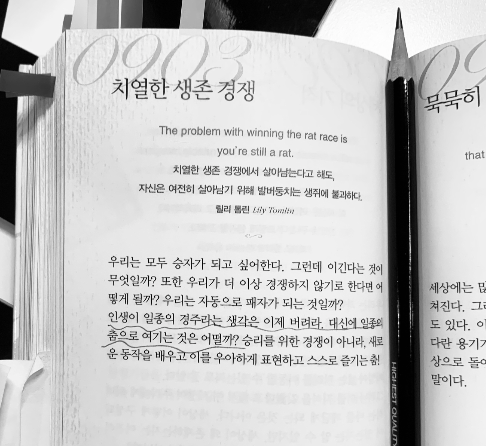 0903
치열한 생존 경쟁
The problem with winning the rat race is
you're still a rat.
치열한 생존 경쟁에서 살아남는다고 해도,
자신은 여전히 살아남기 위해 발버둥치는 생쥐에 불과하다.
릴리 톰린 Lily Tomlin
우리는 모두 승자가 되고 싶어한다. 그런데 이긴다는 것이
무엇일까? 또한 우리가 더 이상 경쟁하지 않기로 한다면 어
떻게 될까? 우리는 자동으로 패자가 되는 것일까?
인생이 일종의 경주라는 생각은 이제 버려라. 대신에 일종의
춤으로 여기는 것은 어떨까? 승리를 위한 경쟁이 아니라, 새로
운 동작을 배우고 이를 우아하게 표현하고 스스로 즐기는 춤!
09
묵묵히
that
세상에는 많
쳐진다. 그러
도 있다. 이
다란 용기가
상으로 돌아
말이다.
HIGHEST QUALITY